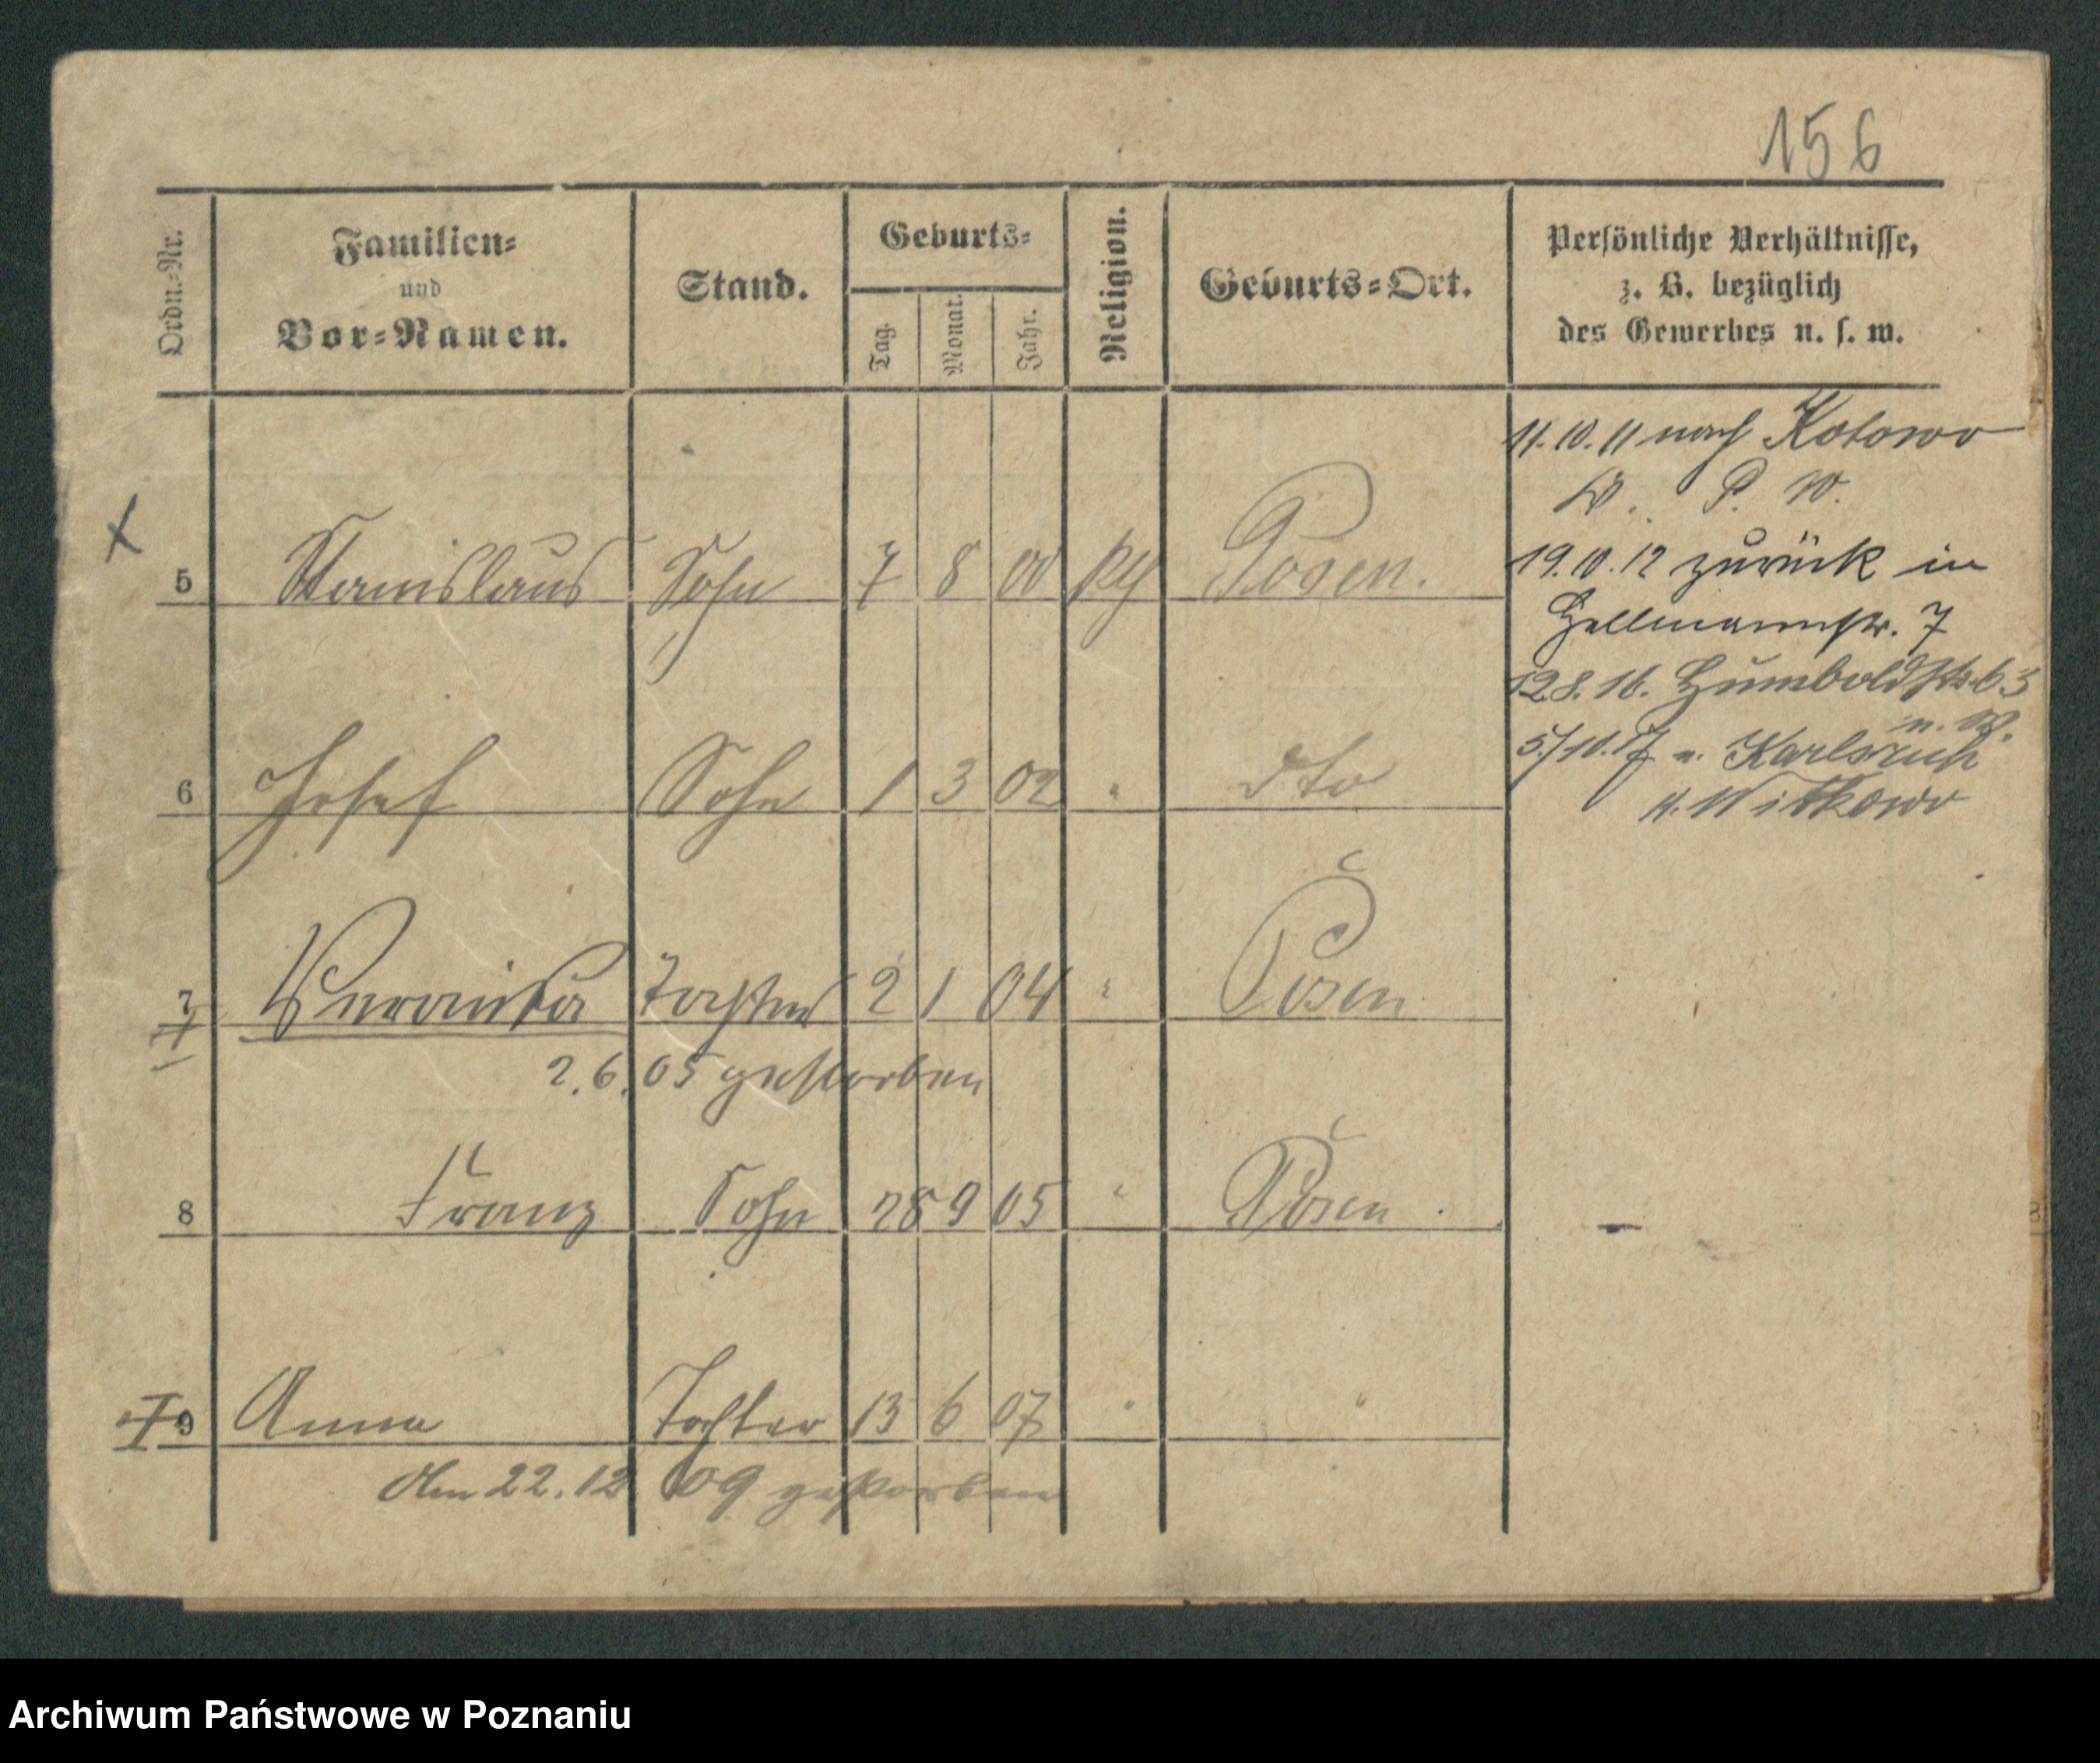 156
Ordn.-Nr.
Familien-
und
Vor-Namen.
Stand.
Geburts-
Tag.
Monat.
Jahr.
Religion.
Geburts-Ort.
Persönliche Verhältnisse,
z. B. bezüglich
des Gewerbes u. s. w.
11.10.11 nach Kotowo
P. W.
19.10.12 zurück in
Hellmannstr. 7
12.8.16. Humboldtstr. 63
5/10.17 n. Karlsruh
Witkowo
5 Stanislaus Sohn 7 8 00 Posen.
6 Josef Sohn 1 3 02 " dto
7 Veronika Tochter 2 1 04 " Posen
2.6.05 gestorben
8 Franz Sohn 28 9 05 " Posen
9 Anna Tochter 13 6 07 " "
Am 22.12 09 gestorben
Archiwum Państwowe w Poznaniu